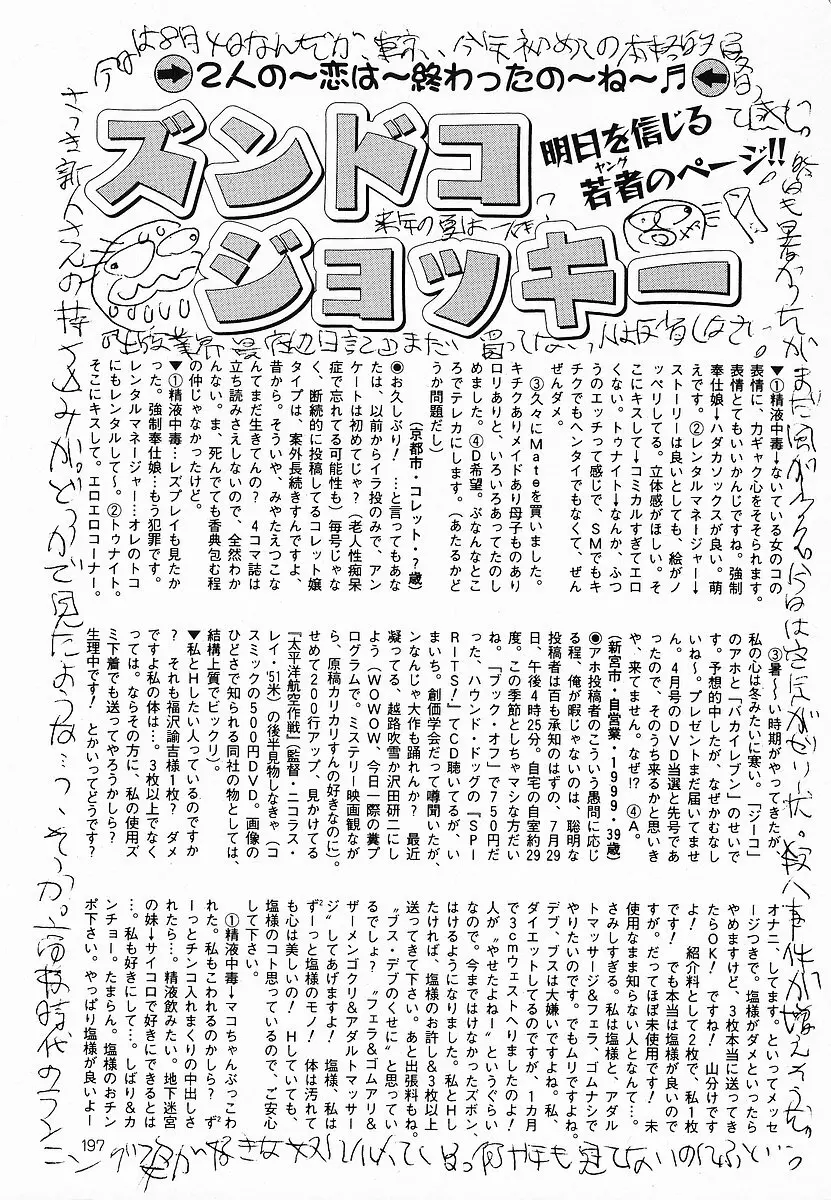 ➡2人の〜恋は〜終わったの〜ね〜♬⬅
ズンドコ
ジョッキー
明日を信じる
ヤング
若者のページ!!
来年の夏は
▼①精液中毒→ないている女のコの
表情に、カギャク心をそそられます。
表情とてもいいかんじですね。強制
奉仕娘→ハダカソックスが良い。萌
えです。②レンタルマネージャー→
ストーリーは良いとしても、絵がノ
ッペリしてる。立体感がほしい。そ
こにキスして→コミカルすぎてエロ
くない。トゥナイト→なんか、ふつ
うのエッチって感じで、SMでもキ
チクでもヘンタイでもなくて、ぜん
ぜんダメ。
③久々にMateを買いました。
キチクありメイドあり母子ものあり
ロリありと、いろいろあってたのし
めました。④D希望。ぶなんなとこ
ろでテレカにします。(あたるかど
うか問題だし)
(京都市・コレット・?歳)
◉お久しぶり!…と言ってもあな
たは、以前からイラ投のみで、アン
ケートは初めてじゃ?(老人性痴呆
症で忘れてる可能性も)毎号じゃな
く、断続的に投稿してるコレット嬢
タイプは、案外長続きすんですよ、
昔から。そういや、みやたえつこな
んてまだ生きてんの?4コマ誌は
立ち読みさえしないので、全然わか
んない。ま、死んでても香典包む程
の仲じゃなかったけど。
▼①精液中毒…レズプレイも見たか
った。強制奉仕娘…もう犯罪です。
レンタルマネージャー…オレのトコ
にもレンタルして〜。②トゥナイト。
そこにキスして。エロエロコーナー。
③暑〜い時期がやってきたが、
私の心は冬みたいに寒い。「ジーコ」
のアホと「バカイレブン」のせいで
す。予想的中したが、なぜかむなし
いね〜。プレゼントまだ届いてませ
ん。4月号のDVD当選と先号であ
ったので、そのうち来るかと思いき
や、来てません。なぜ!?④A。
(新宮市・自営業・1999・39歳)
◉アホ投稿者のこういう愚問に応じ
る程、俺が暇じゃないのは、聡明な
投稿者は百も承知のはずの、7月29
日、午後4時25分。自宅の自室約29
度。この季節としちゃマシな方だい
ね。「ブック・オフ」で750円だ
った、ハウンド・ドッグの『SPI
RITS!』てCD聴いてるが、い
まいち。創価学会だって噂聞いたが、
ンなんじゃ大作も踊れんか?最近
凝ってる、越路吹雪か沢田研二にし
よう(WOWOW、今日一際の糞プ
ログラムで。ミステリー映画観なが
ら、原稿カリカリすんの好きなのに)。
せめて200行アップ、見かけてる
『太平洋航空作戦』(監督・ニコラス・
レイ・'51米)の後半見物しなきゃ(コ
スミックの500円DVD。画像の
ひどさで知られる同社の物としては、
結構上質でビックリ)。
▼私とHしたい人っているのですか
?それも福沢諭吉様1枚?ダメ
ですよ私の体は…。3枚以上でなく
っては。ならその方に、私の使用ズ
ミ下着でも送ってやろうかしら?
生理中です!とかいってどうです?
オナニ、してます。といってメッセ
ージつきで。塩様がダメといったら
やめますけど、3枚本当に送ってき
たらOK!ですね!山分けです
よ!紹介料として2枚で、私1枚
です!でも本当は塩様が良いので
すが。だってほぼ未使用です!未
使用なまま知らない人となんて…。
さみしすぎる。私は塩様と、アダル
トマッサージ&フェラ、ゴムナシで
やりたいのです。でもムリですよね。
デブ、ブスは大嫌いですよね。私、
ダイエットしてるのですが、1カ月
で3cmウェストへりましたのよ!
人が〝やせたよね〟というぐらい
なので。今まではけなかったズボン、
はけるようになりました。私とHし
たければ、塩様のお許し&3枚以上
送ってきて下さい。あと出張料もね。
〝ブス・デブのくせに〟と思ってい
るでしょ?〝フェラ&ゴムアリ&
ザーメンゴクリ&アダルトマッサー
ジ〟してあげますよ!塩様、私は
ずーっと塩様のモノ!体は汚れて
も心は美しいの!Hしていても、
塩様のコト思っているので、ご安心
して下さい。
①精液中毒→マコちゃんぶっこわ
れた。私もこわれるのかしら?ず
ーっとチンコ入れまくりの中出しさ
れたら…。精液飲みたい。地下迷宮
の妹→サイコロで好きにできるとは
…。私も好きにして…。しばり&カ
ンチョー。たまらん。塩様のおチン
ポ下さい。やっぱり塩様が良いよー
197
今日は8月4日なんだが、東京、今年初めての本格的夏日って感じ。
さっき新人さんの持ち込みが。どっかで見たような…?そうか。